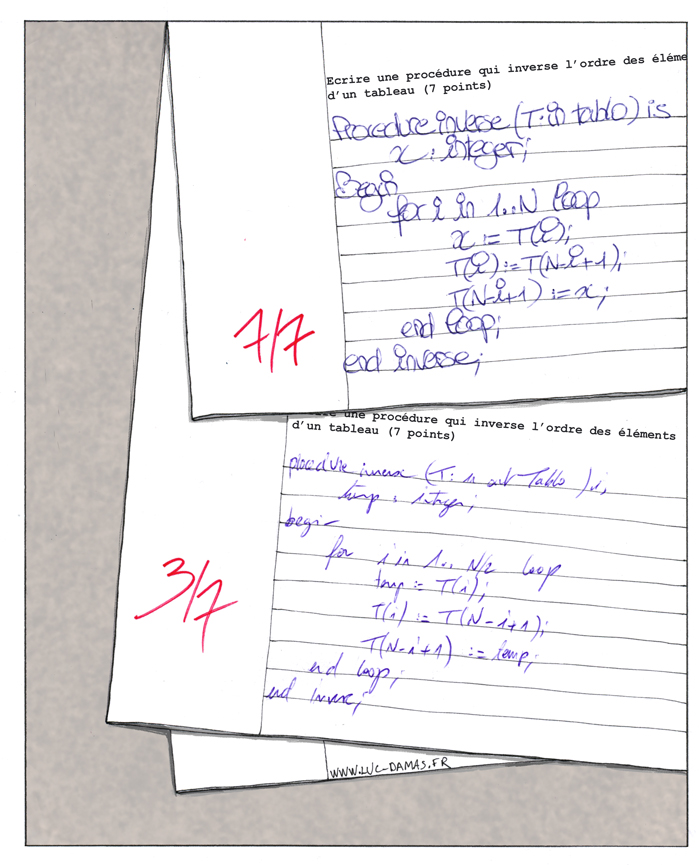 Ecrire une procédure qui inverse l'ordre des éléme
d'un tableau (7 points)
Procedure inverse (T: in tablo) is
x : integer;
Begin
for i in 1..N loop
x := T(i);
T(i) := T(N-i+1);
T(N-i+1) := x;
end loop;
end inverse;
7/7
une procédure qui inverse l'ordre des éléments
d'un tableau (7 points)
procedure inverse (T: in out Tablo ) is
temp : integer;
begin
for i in 1.. N/2 loop
temp := T(i);
T(i) := T(N-i+1);
T(N-i+1) := temp;
end loop;
end inverse;
3/7
WWW.LUC-DAMAS.FR